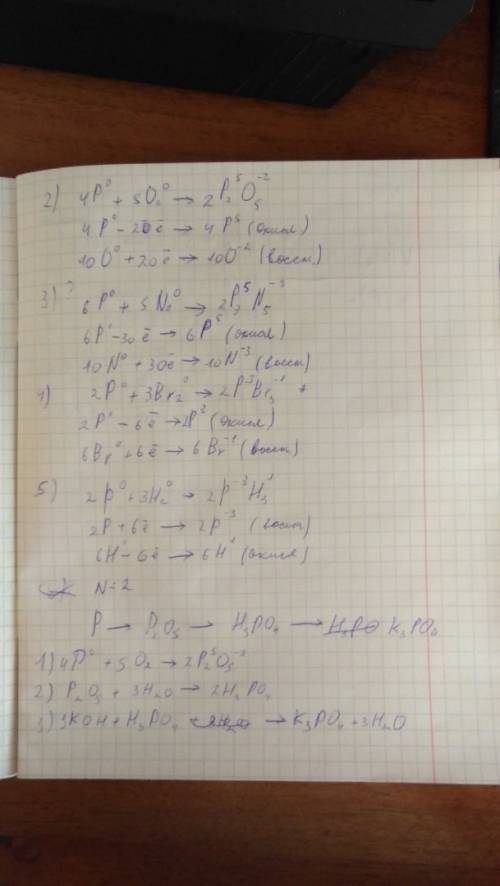 2) 4P⁰ + 5O₂⁰ → 2P₂⁵O₅⁻²
4P⁰ - 20ē → 4P⁵ (окисл)
10O⁰ + 20ē → 10O⁻² (восст)
3)? 6P⁰ + 5N₂⁰ → 2P₃⁵N₅⁻³
6P⁰ - 30ē → 6P⁵ (окисл)
10N⁰ + 30ē → 10N⁻³ (восст)
4) 2P⁰ + 3Br₂⁰ → 2P³Br₃⁻¹
2P⁰ - 6ē → 2P³ (окисл)
6Br⁰ + 6ē → 6Br⁻¹ (восст)
5) 2P⁰ + 3H₂⁰ → 2P⁻³H₃¹
2P + 6ē → 2P⁻³ (восст)
6H⁰ - 6ē → 6H¹ (окисл)
N=2
P → P₂O₅ → H₃PO₄ → K₃PO₄
1) 4P⁰ + 5O₂ → 2P₂⁵O₅⁻²
2) P₂O₅ + 3H₂O → 2H₃PO₄
3) 3KOH + H₃PO₄ → K₃PO₄ + 3H₂O